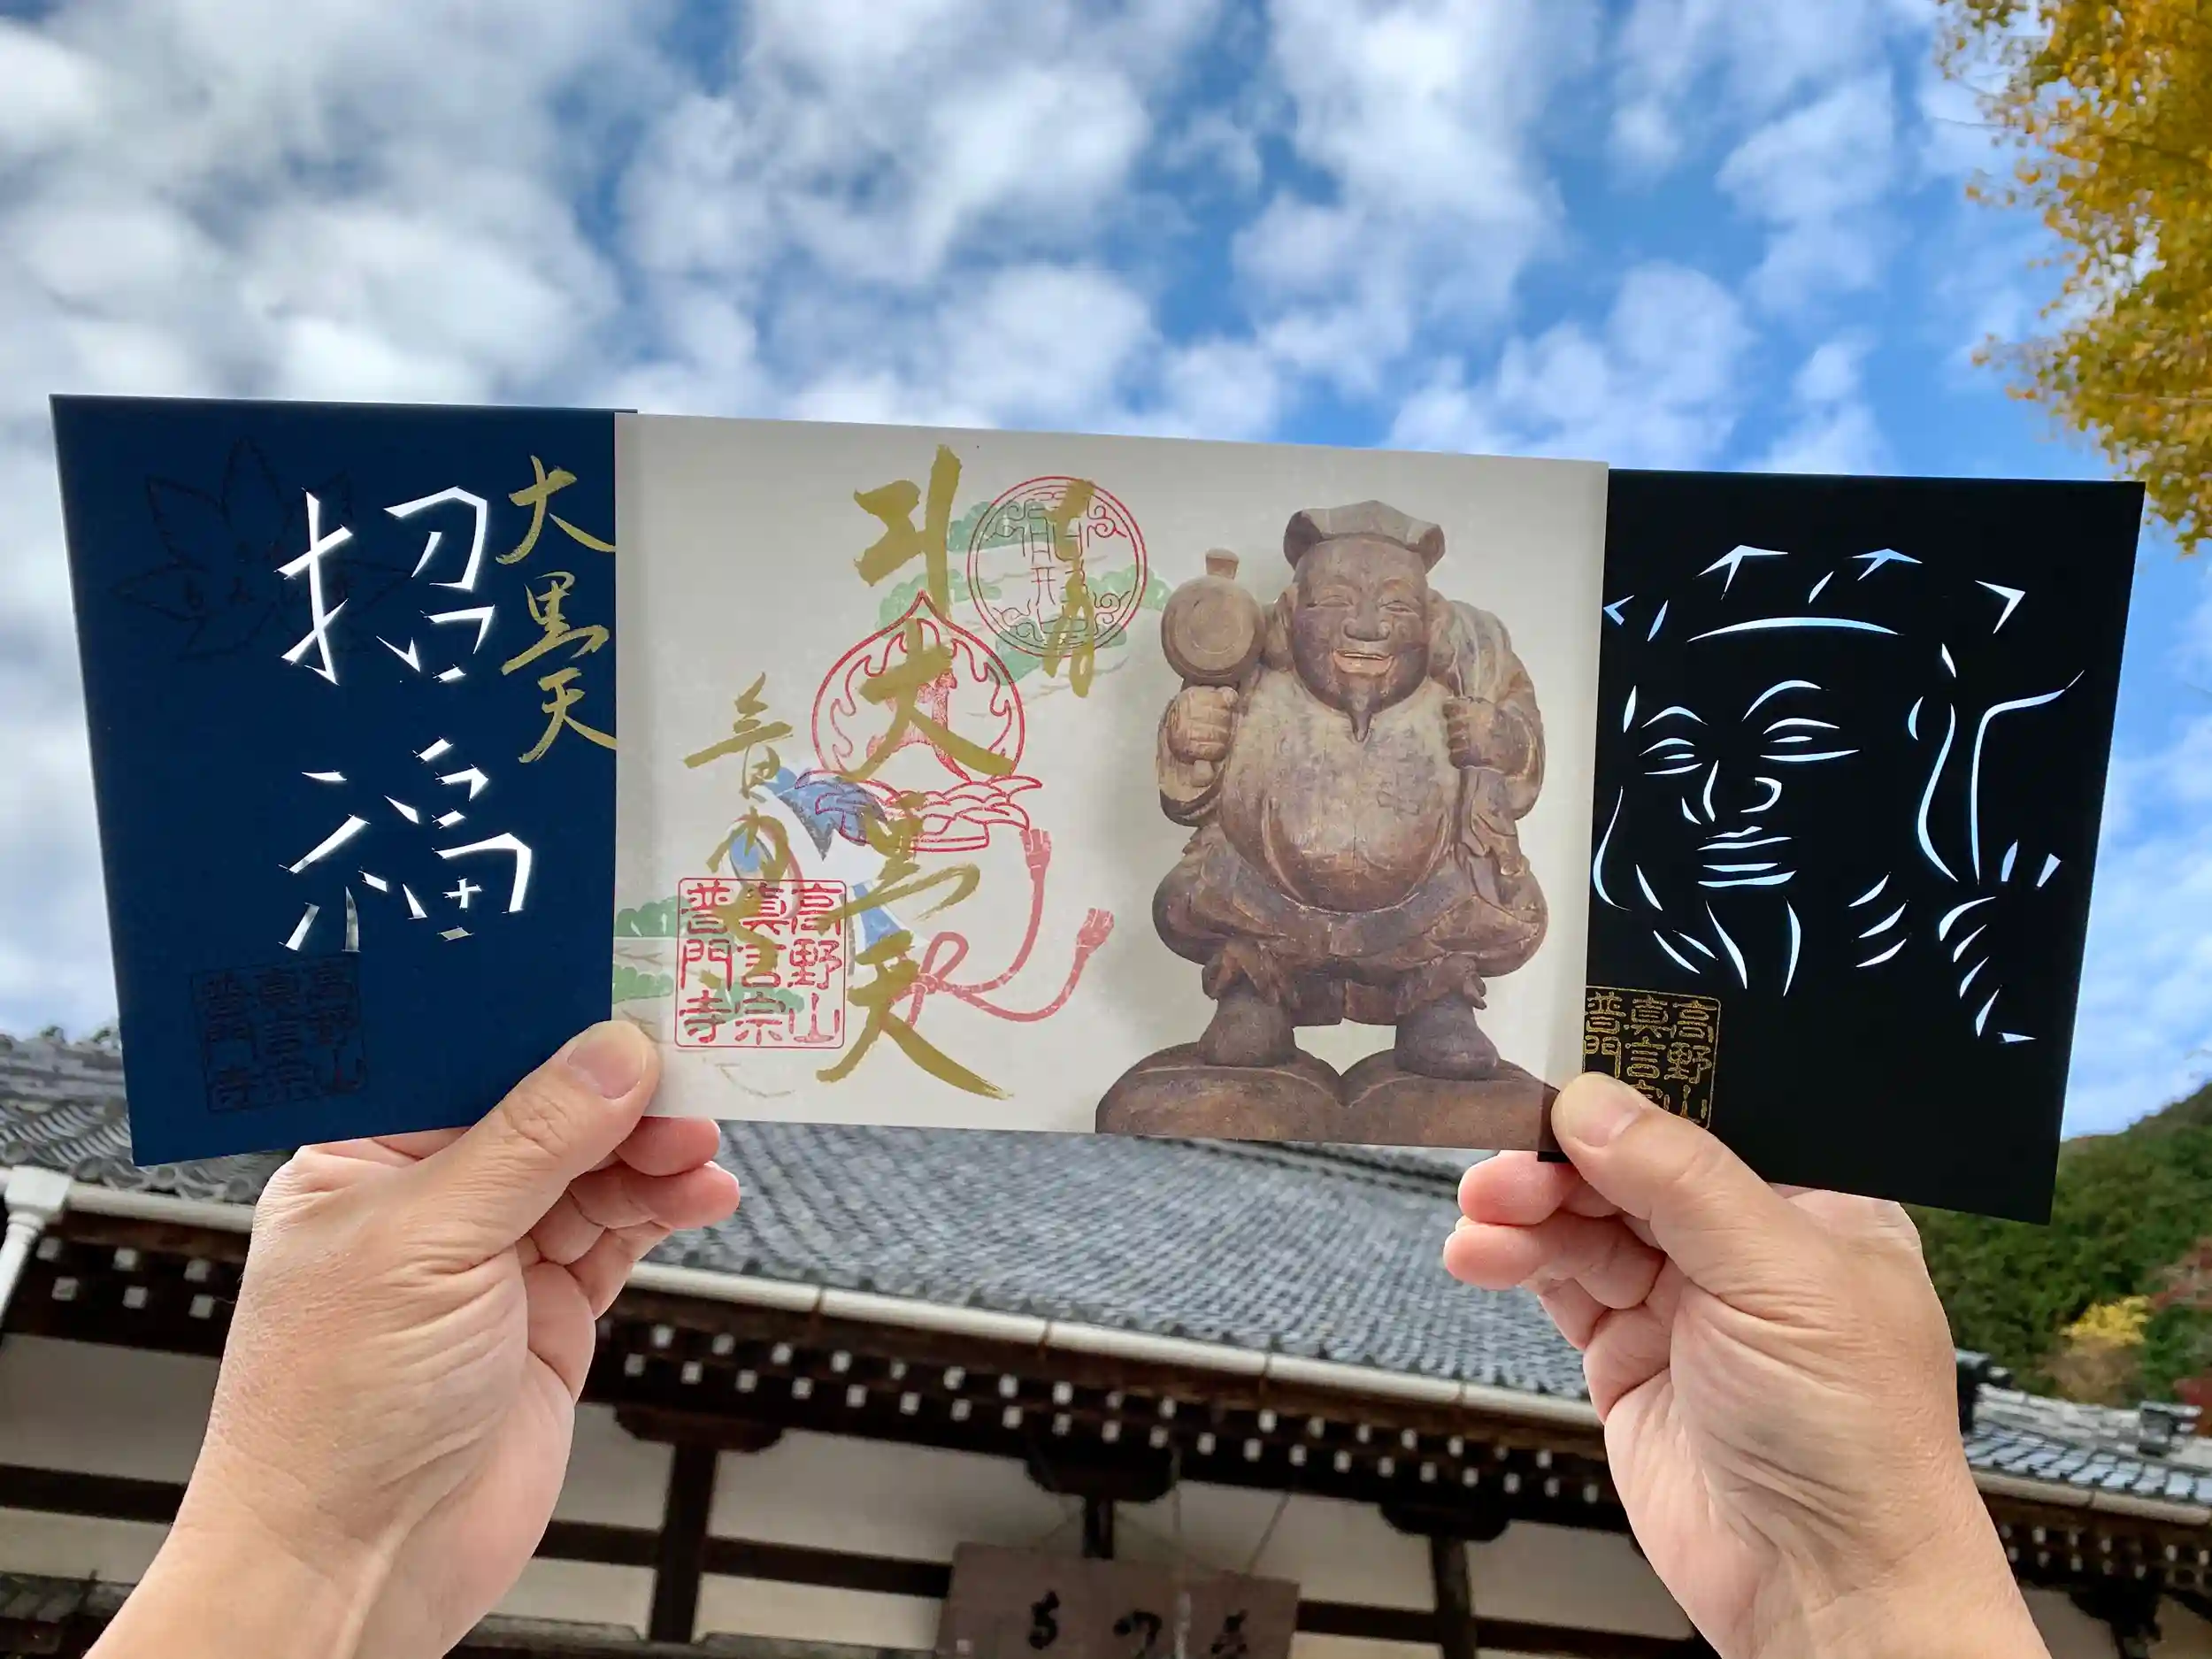 大黒天
招福
高野山
真言宗
普門寺
斗大黒天
普門寺
高野山
真言宗
普門寺
高野山
真言宗
普門